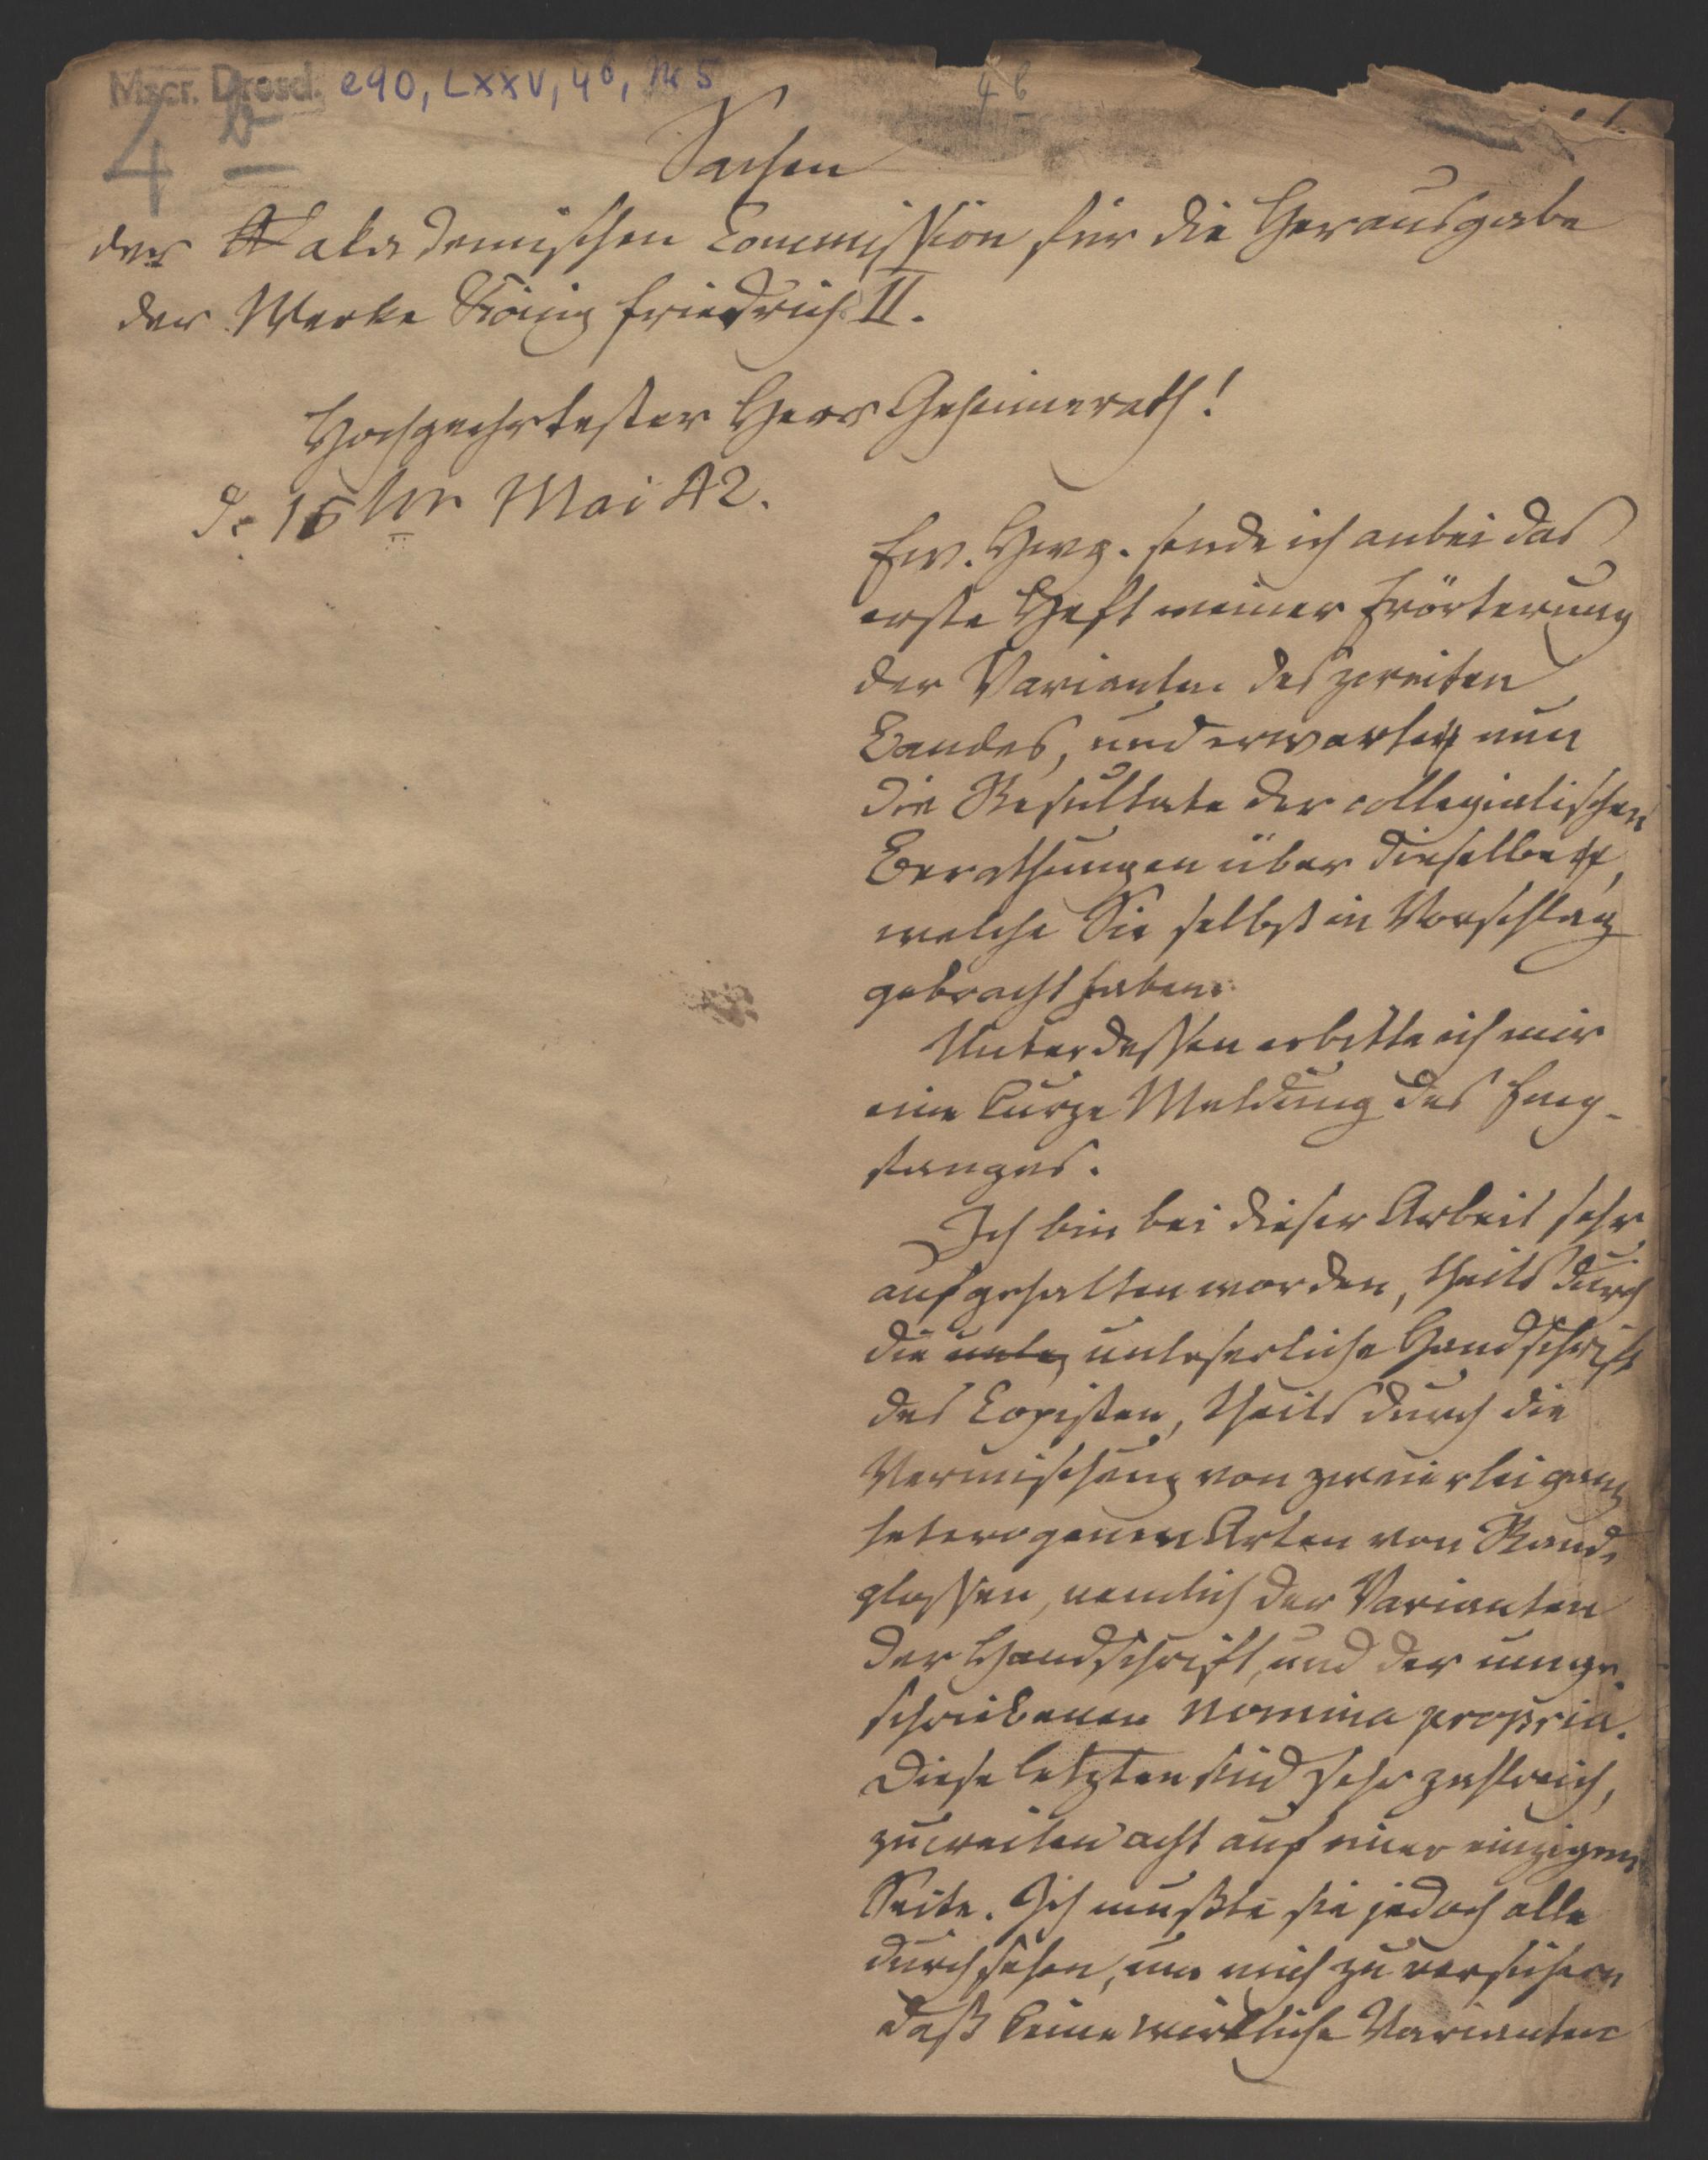 Mscr. Dresd. e90, LXXV, 4b, Nr 5
4b
4 b
1.
Sachen
der akademischen Commission für die Herausgabe
der Werke König Friedrich II.
Hochgeehrtester Herr Geheimerath!
d. 15ten Mai 42.
Ew. sende ich anbei das
erste Heft meiner Erörterung
der Varianten des zweiten
Bandes, und erwarte nun
die Resultate der collegialischen
Berathungen über dieselbe,
welche Sie selbst in Vorschlag
gebracht haben.
Unterdessen erbitte ich mir
eine kurze Meldung des Emp-
fanges.
Ich bin bei dieser Arbeit sehr
aufgehalten worden, theils durch
die unle unleserliche Handschrift
des Copisten, theils durch die
Vermischung von zweierlei ganz
heterogenen Arten von Rand-
glossen, nemlich der Varianten
der Handschrift, und der umge-
schriebenen nomina propria.
Diese letzten sind sehr zahlreich,
zuweilen acht auf einer einzigen
Seite. Ich mußte sie jedoch alle
durchsehen, um mich zu versichern
daß keine wirkliche Varianten